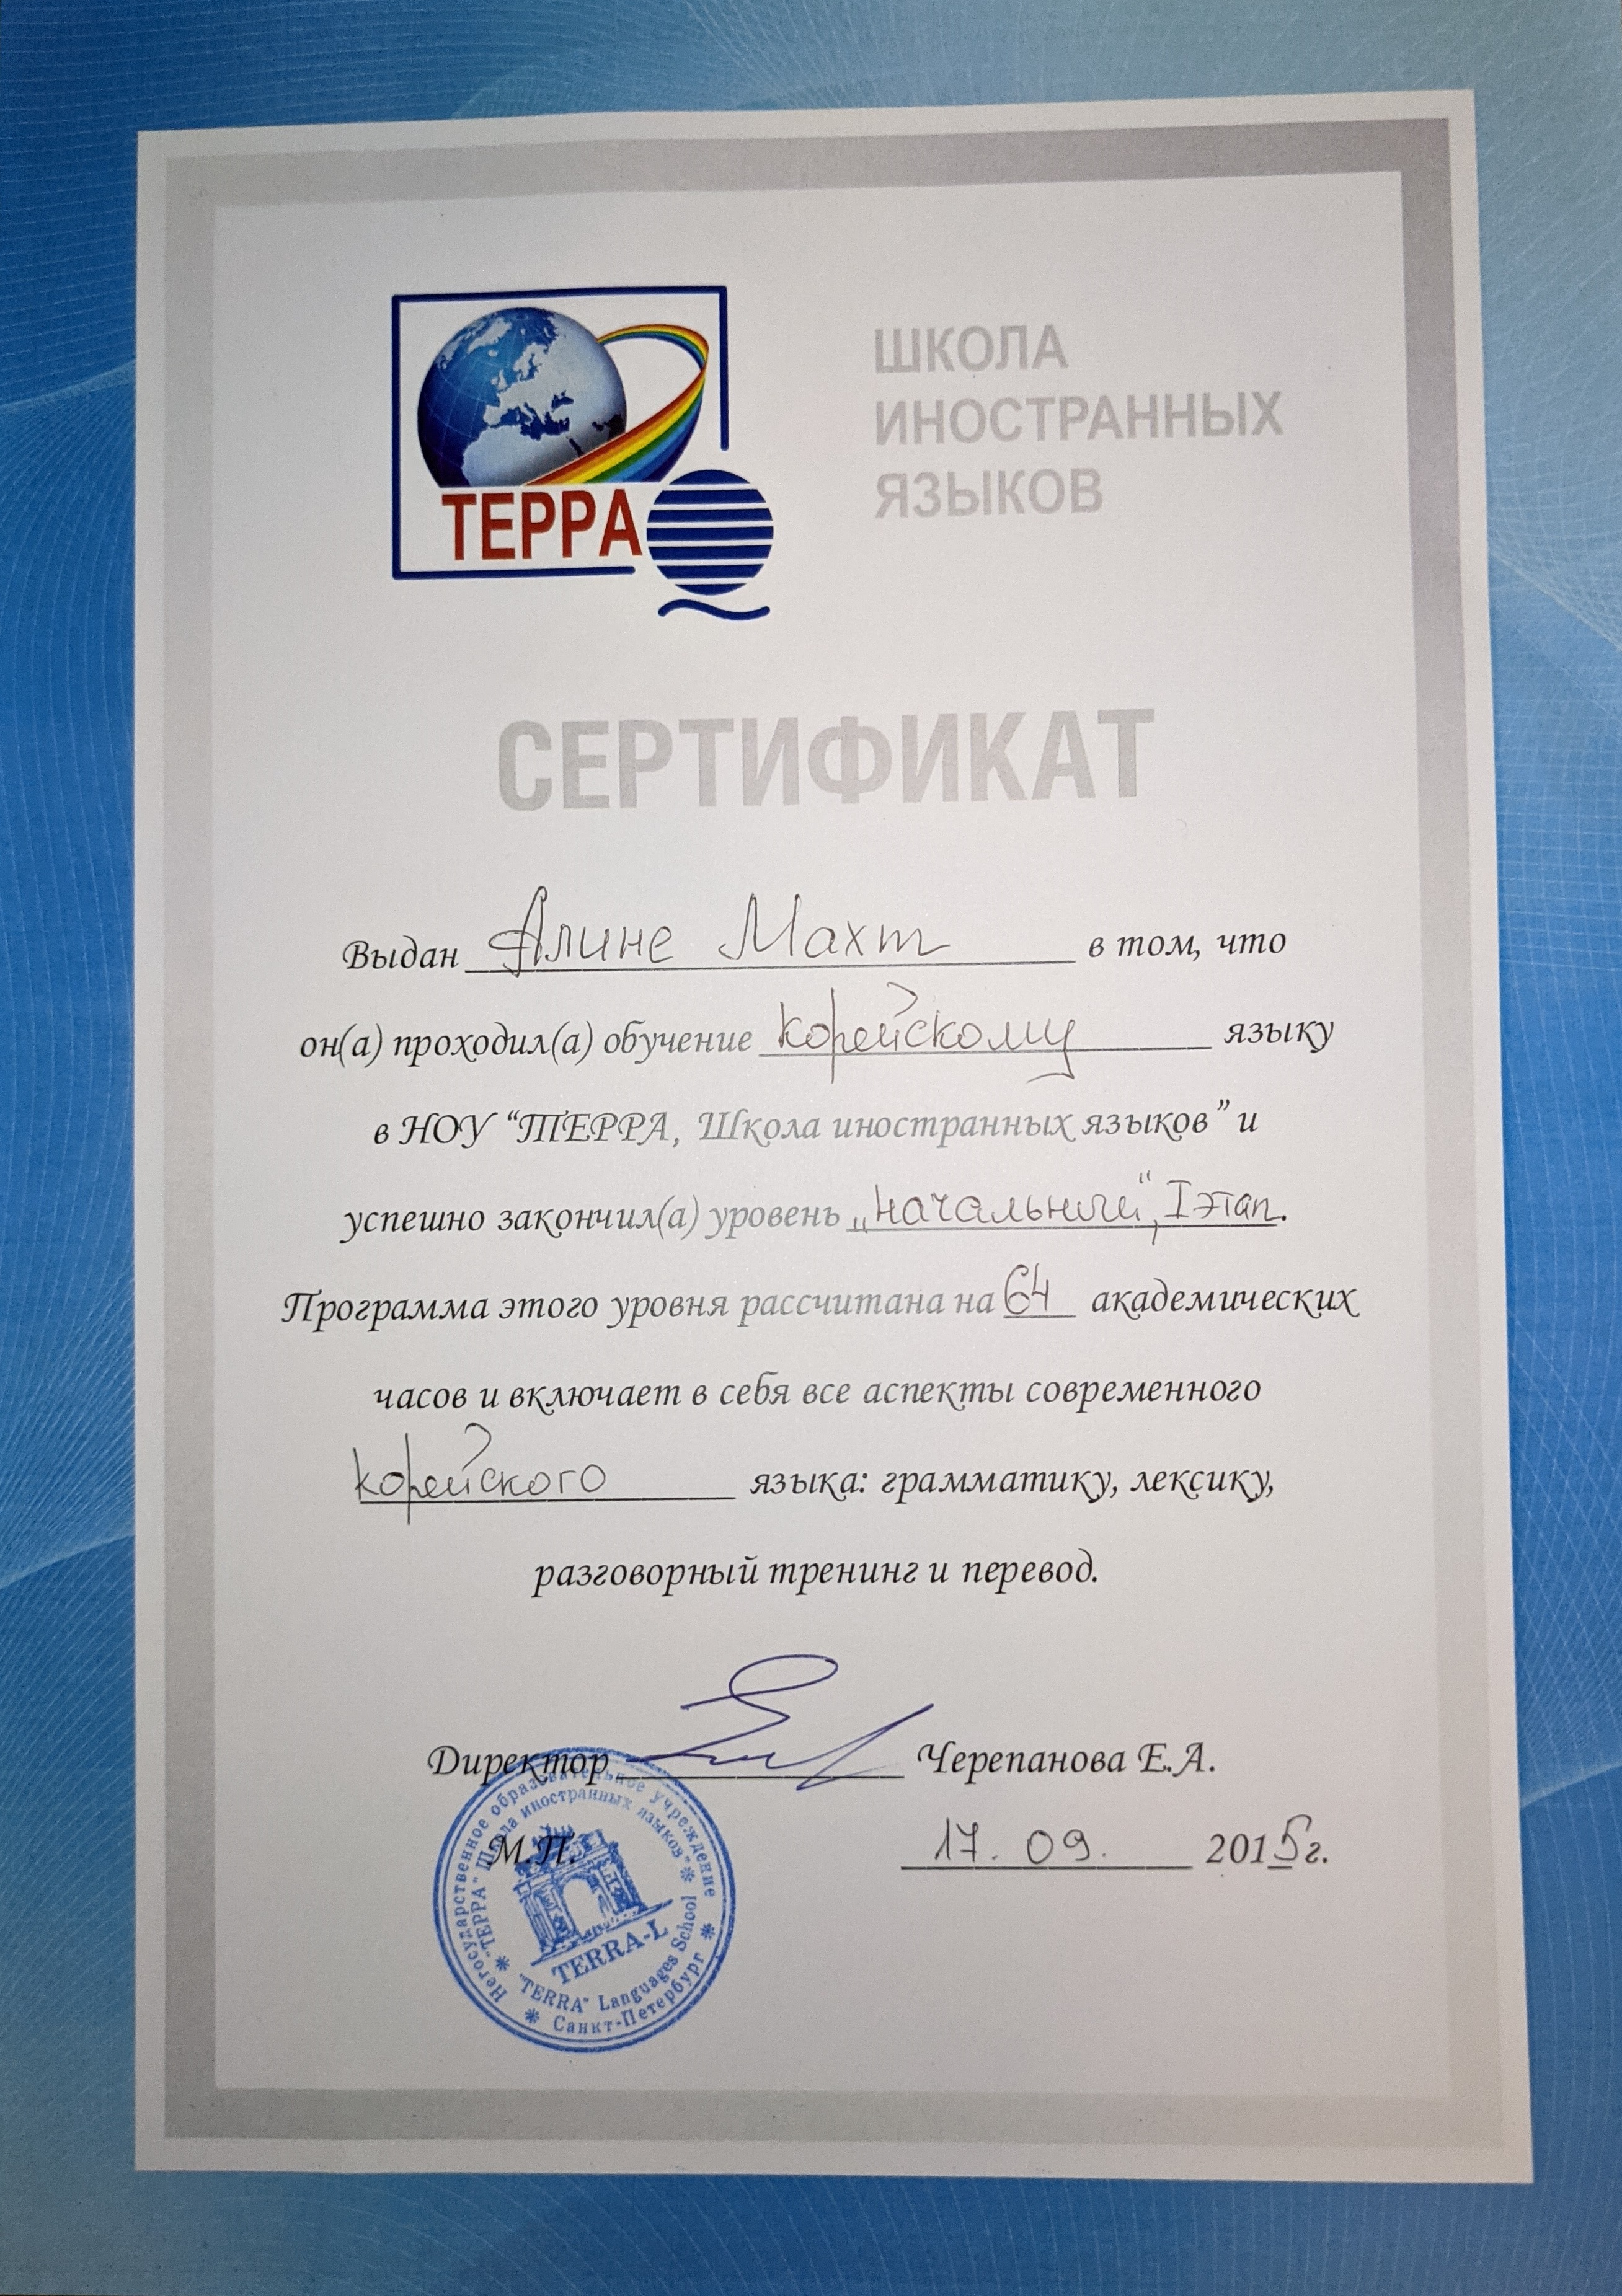 ТЕРРА
ШКОЛА
ИНОСТРАННЫХ
ЯЗЫКОВ
СЕРТИФИКАТ
Выдан Алине Махт в том, что
он(а) проходил(а) обучение корейскому языку
в НОУ “ТЕРРА, Школа иностранных языков” и
успешно закончил(а) уровень „начальный“, I этап.
Программа этого уровня рассчитана на 64 академических
часов и включает в себя все аспекты современного
корейского языка: грамматику, лексику,
разговорный тренинг и перевод.
Директор Черепанова Е.А.
М.П.
17. 09. 2015г.
Негосударственное образовательное учреждение
"ТЕРРА" Школа иностранных языков"
TERRA-L
"TERRA" Languages School
* Санкт-Петербург *